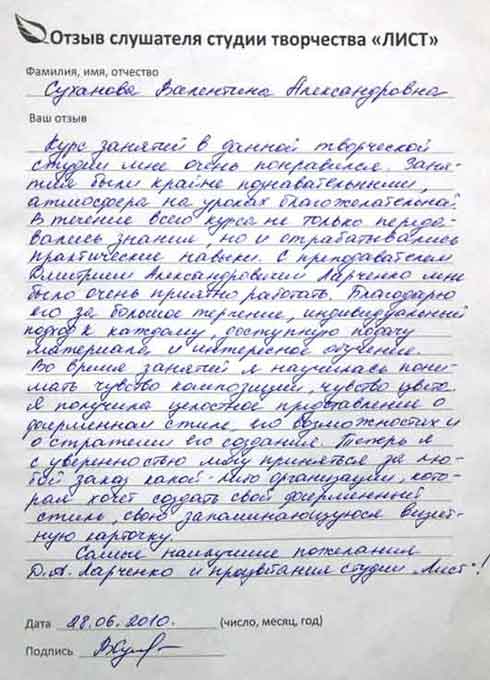 Отзыв слушателя студии творчества «ЛИСТ»
Фамилия, имя, отчество
Суханова Валентина Александровна
Ваш отзыв
Курс занятий в данной творческой
студии мне очень понравился. Заня-
тия были крайне познавательными,
атмосфера на уроках благожелательной.
В течение всего курса не только переда-
вались знания, но и отрабатывались
практические навыки. С преподавателем
Дмитрием Александровичем Ларченко мне
было очень приятно работать. Благодарю
его за большое терпение, индивидуальный
подход к каждому, доступную подачу
материала и интересное обучение.
Во время занятий я научилась пони-
мать чувство композиции, чувство цвета.
Я получила целостное представление о
фирменном стиле, его возможностях и
о стратегии его создания. Теперь я
с уверенностью могу приняться за лю-
бой заказ какой-либо организации, кото-
рая хочет создать свой фирменный
стиль, свою запоминающуюся визит-
ную карточку.
Самые наилучшие пожелания
Д.А. Ларченко и процветания студии „Лист"!
Дата 28.06.2010. (число, месяц, год)
Подпись